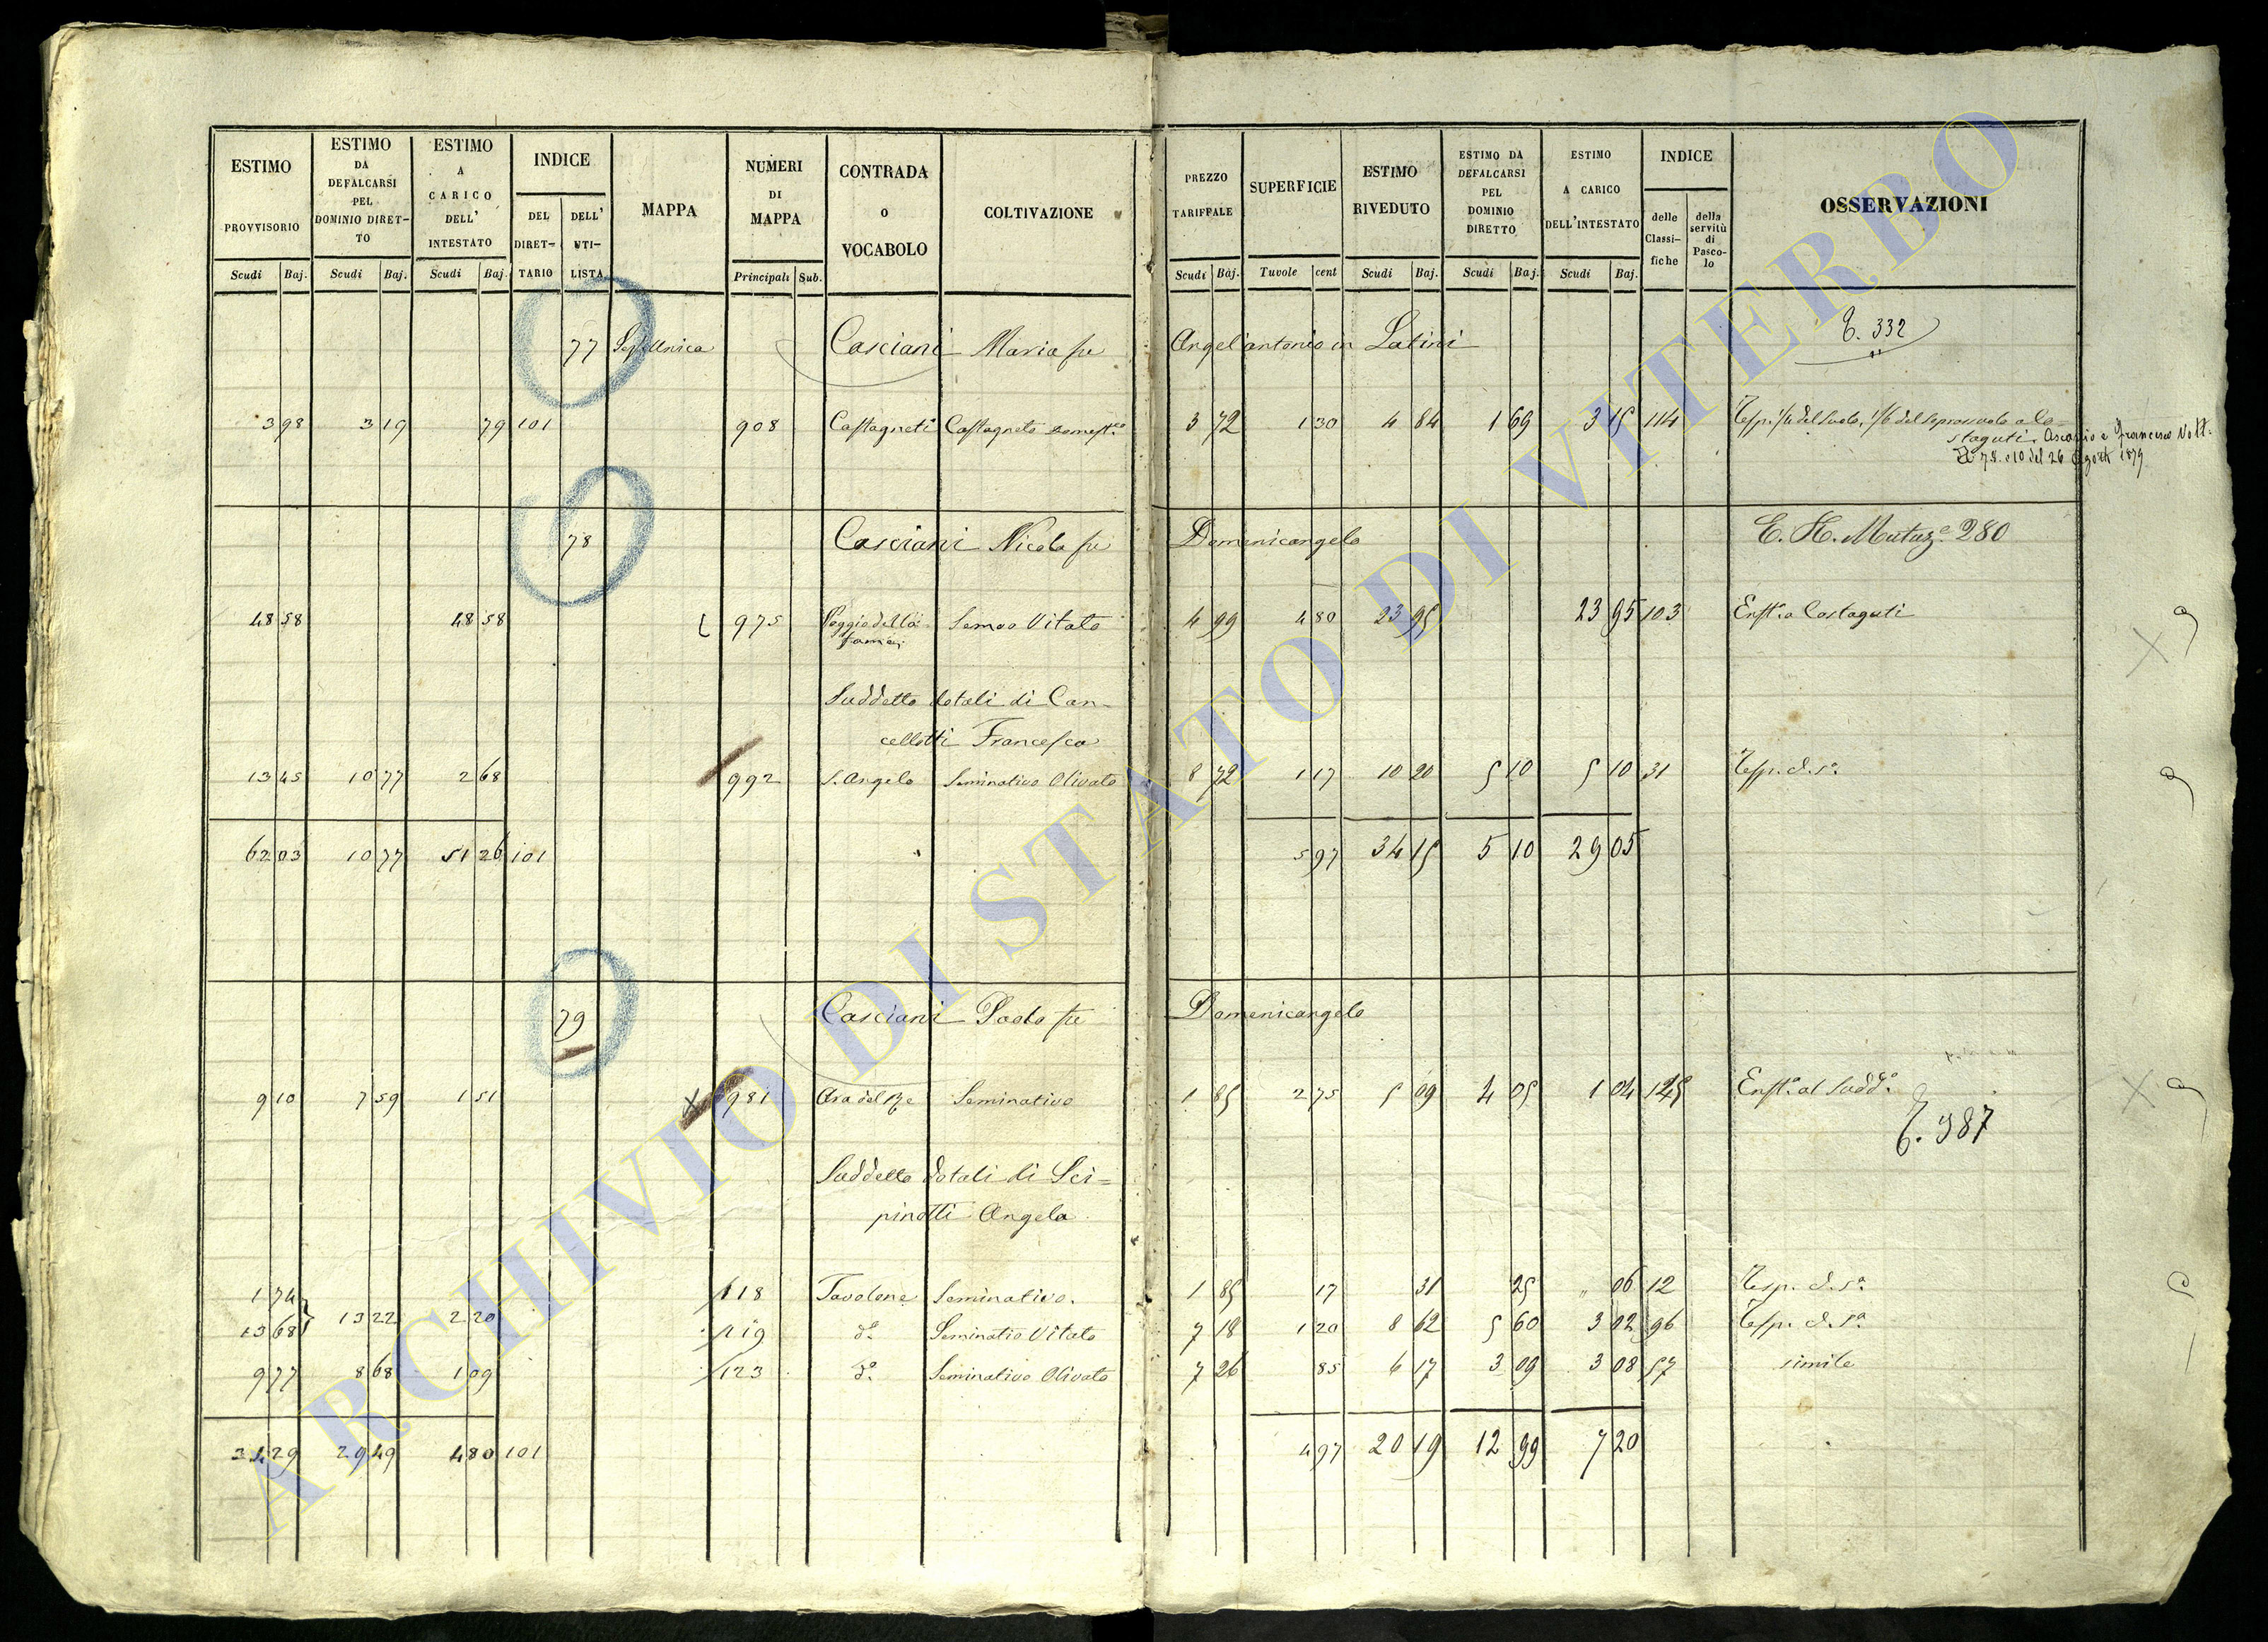 ESTIMO PROVVISORIO Scudi Baj.
ESTIMO DA DEFALCARSI PEL DOMINIO DIRET-TO Scudi Baj.
ESTIMO A CARICO DELL' INTESTATO Scudi Baj.
INDICE DEL DIRET-TARIO DELL' UTI-LISTA
MAPPA
NUMERI DI MAPPA Principali Sub.
CONTRADA O VOCABOLO
COLTIVAZIONE
PREZZO TARIFFALE Scudi Baj.
SUPERFICIE Tavole cent
ESTIMO RIVEDUTO Scudi Baj.
ESTIMO DA DEFALCARSI PEL DOMINIO DIRETTO Scudi Baj.
ESTIMO A CARICO DELL'INTESTATO Scudi Baj.
INDICE delle Classi-fiche della servitù di Pasco-lo
OSSERVAZIONI
77 Casciani Maria fu Angel'antonio in Latini 332
3 98 3 19 79 101 908 Castagneti Castagneto domest.co 3 72 1 30 4 84 1 69 3 15 114 Resp. 1/4 del suolo, 1/6 del soprassuolo a Co-
staguti Ascanio e Francesco Volt.
78 e 10 del 26 Agosto 1879
78 Casciani Nicola fu Domenicangelo Mutuz.e 280
48 58 48 58 975 Poggio della Semvo Vitato 4 99 4 80 23 95 23 95 103 Enft.a Costaguti
fame
Suddetto dotali di Can-
cellotti Francesca
13 45 10 77 2 68 992 S. Angelo Seminativo Olivato 8 72 1 17 10 20 5 10 5 10 31 Resp. d. s.a
62 03 10 77 51 26 101 5 97 34 15 5 10 29 05
79 Casciani Paolo fu Domenicangelo
9 10 7 59 1 51 981 Ara del Re Seminativo 1 85 2 75 5 09 4 05 1 04 145 Enft.a al Sudd.o
987
Suddetto dotali di Sci=
pinotti Angela
1 74 118 Tavolone Seminativo. 1 85 17 31 25 " 06 12 Resp. d. s.a
13 68 13 22 2 20 119 d.o Seminativo Vitato 7 18 1 20 8 62 5 60 3 02 96 Resp. d. s.a
9 77 8 68 1 09 123 d.o Seminativo Olivato 7 26 85 6 17 3 09 3 08 57 simile
34 29 29 49 4 80 101 4 97 20 19 12 99 7 20
ARCHIVIO DI STATO DI VITERBO